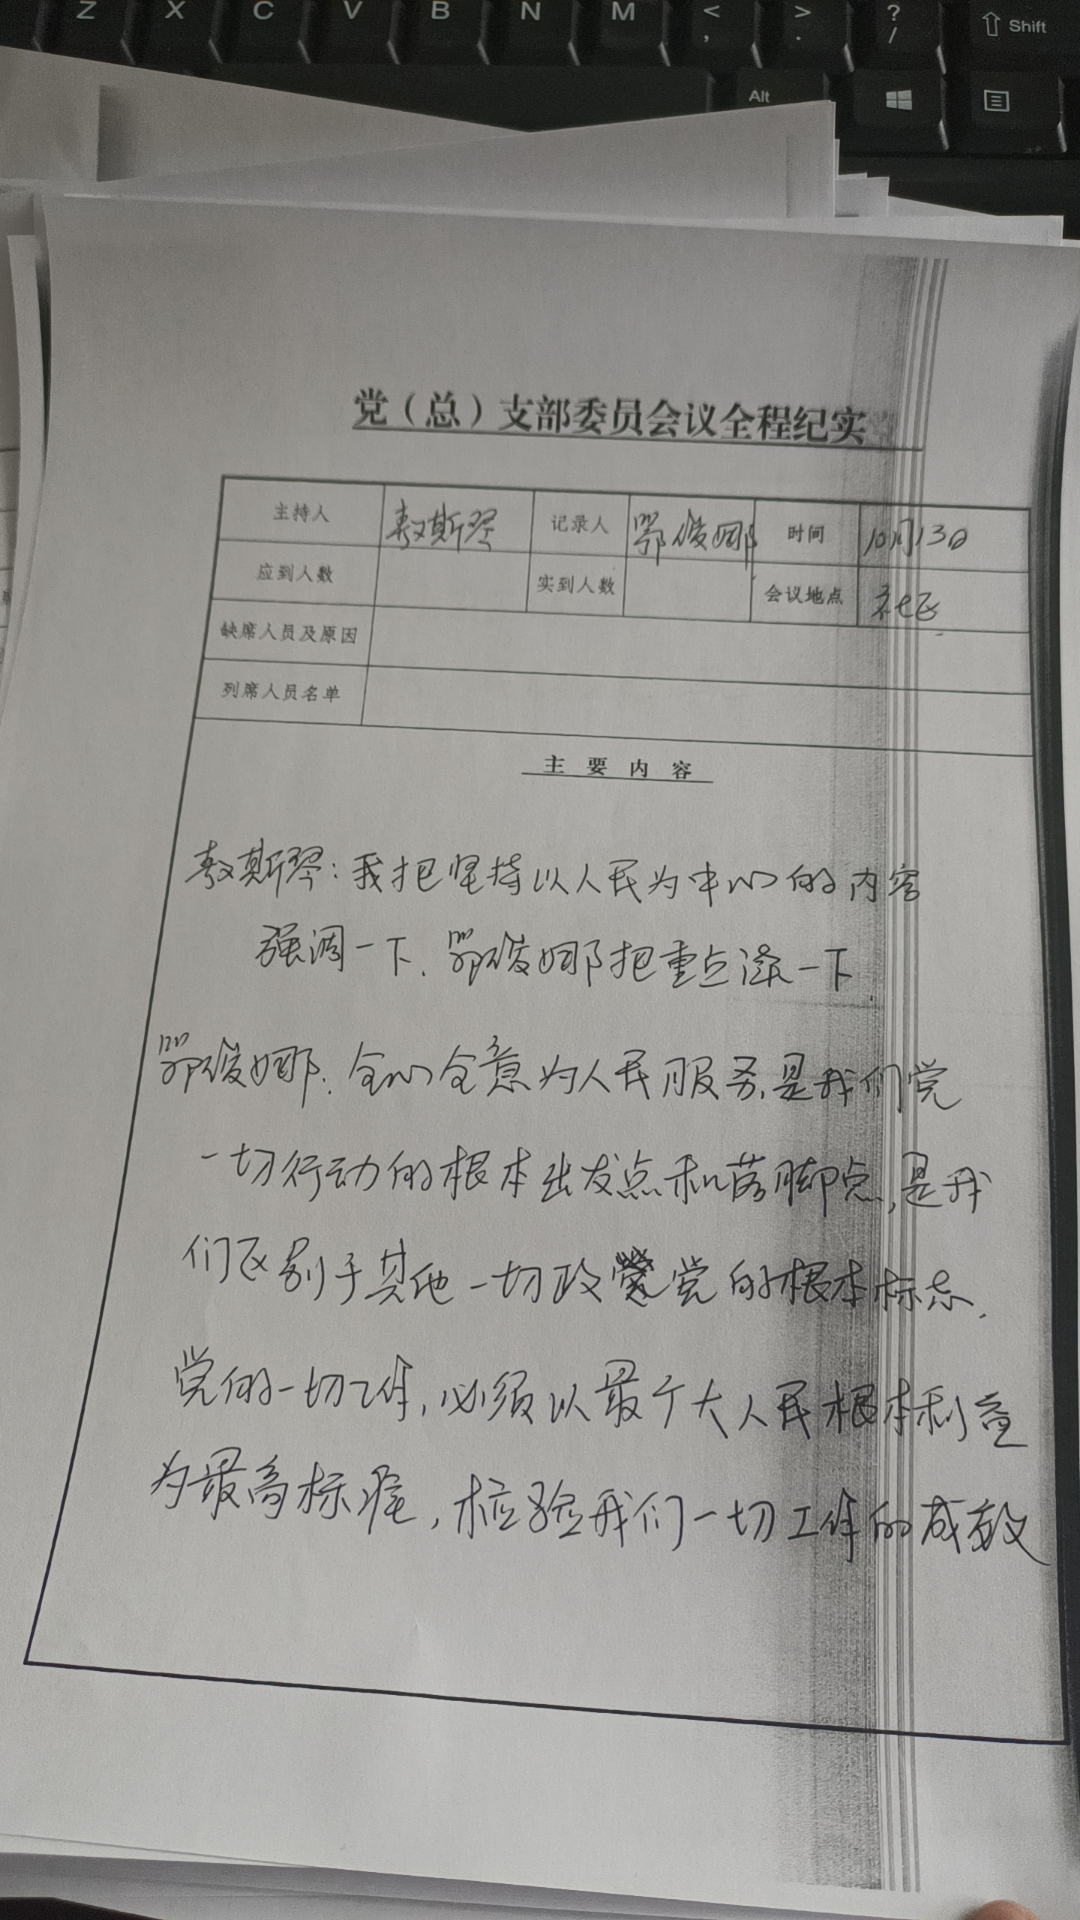 Z X C V B N M < , > . ? / Shift
Alt
党（总）支部委员会议全程纪实
主持人 敖斯琴 记录人 鄂俊娜 时间 10月13日
应到人数 实到人数 会议地点 社区
缺席人员及原因
列席人员名单
主要内容
敖斯琴：我把坚持以人民为中心的内容
强调一下，鄂俊娜把重点读一下。
鄂俊娜：全心全意为人民服务，是我们党
一切行动的根本出发点和落脚点，是我
们区别于其他一切政党的根本标志。
党的一切工作，必须以最广大人民根本利益
为最高标准，检验我们一切工作的成效